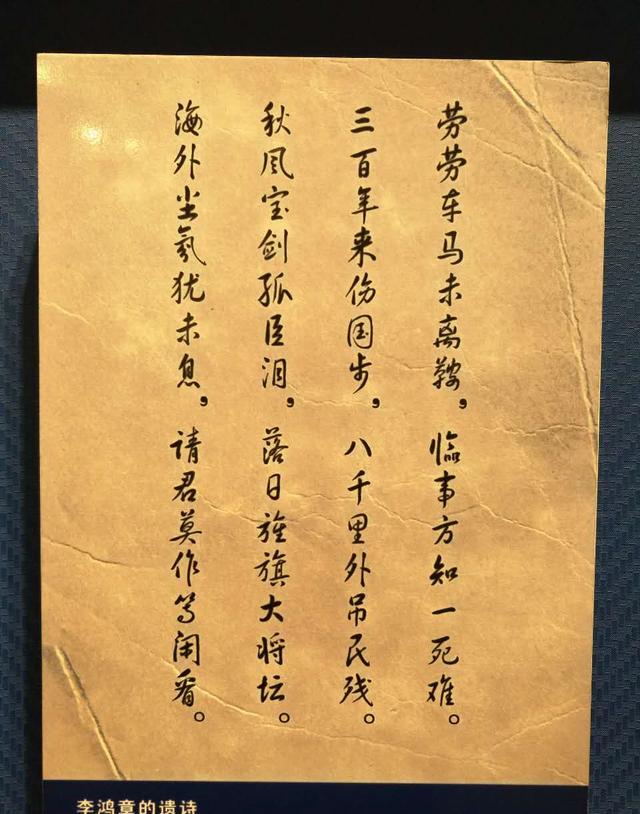 劳劳车马未离鞍，临事方知一死难。
三百年来伤国步，八千里外吊民残。
秋风宝剑孤臣泪，落日旌旗大将坛。
海外尘氛犹未息，请君莫作等闲看。
李鸿章的遗诗